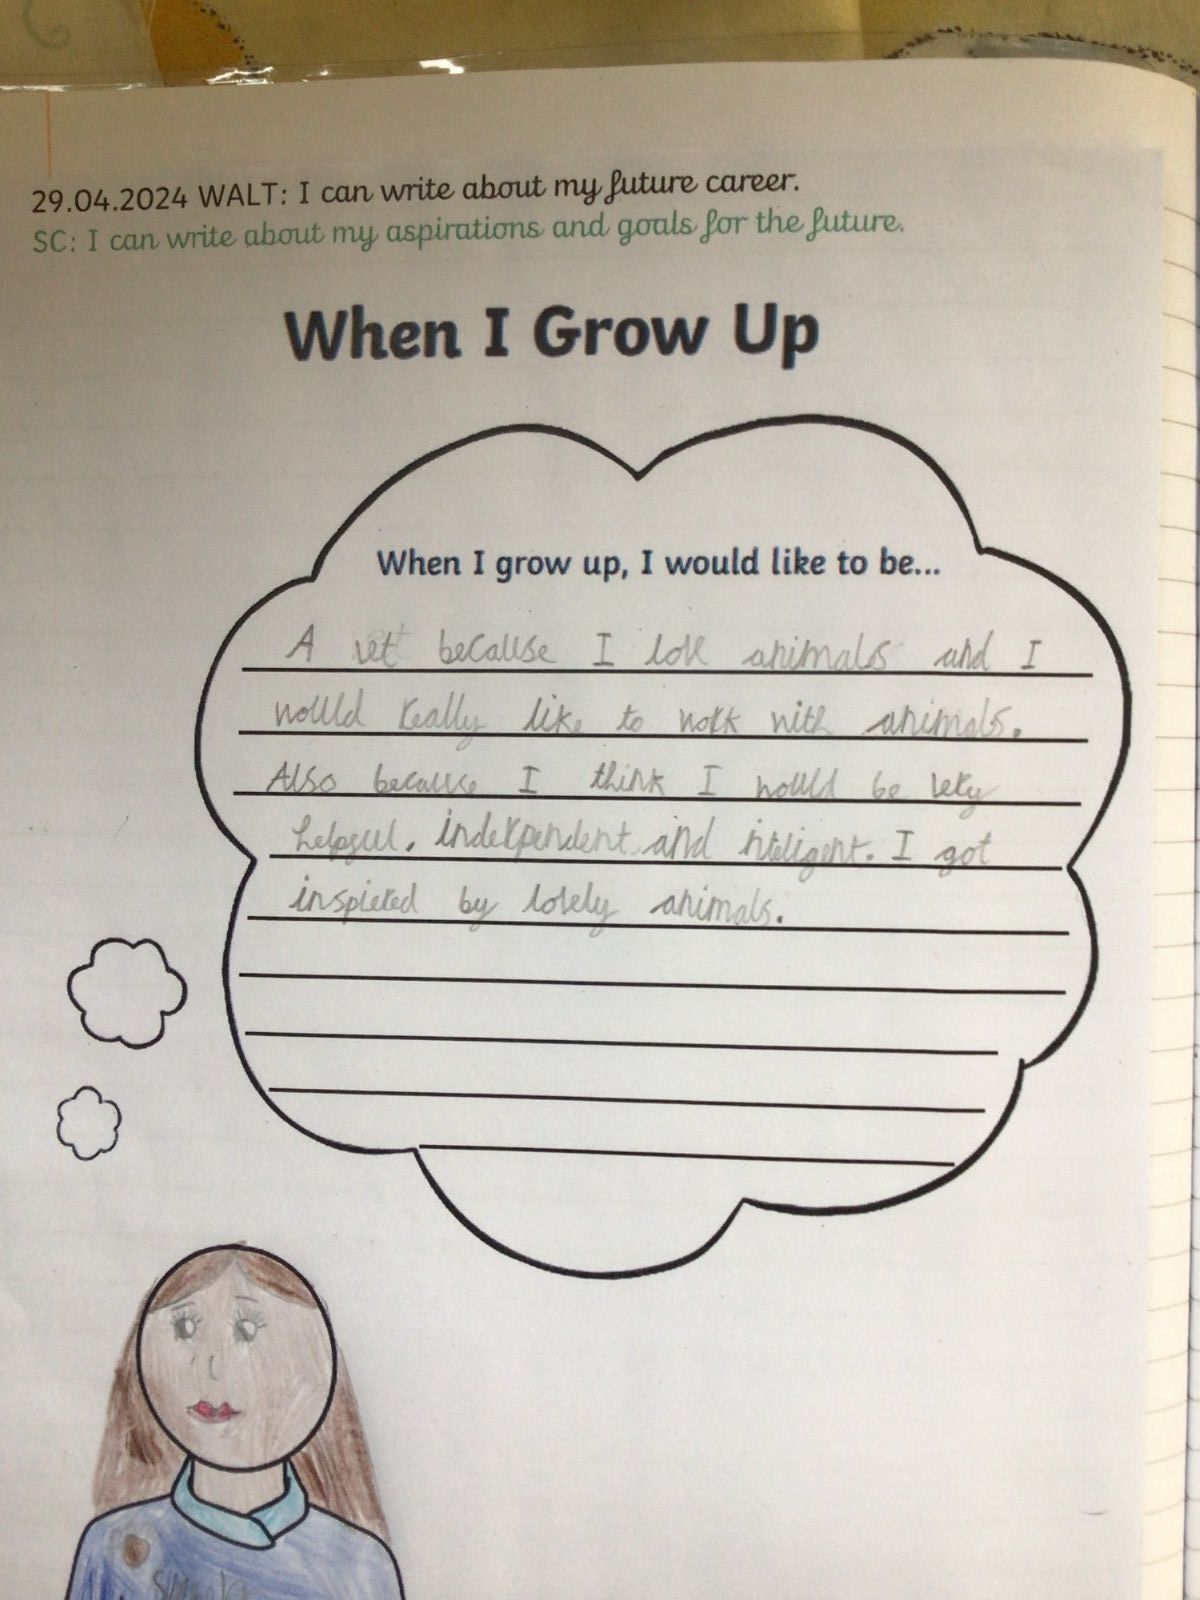 29.04.2024 WALT: I can write about my future career.
SC: I can write about my aspirations and goals for the future.
When I Grow Up
When I grow up, I would like to be...
A vet because I love animals and I
would really like to work with animals.
Also because I think I would be very
helpful, inderpendent and inteligent. I got
inspiered by lovely animals.